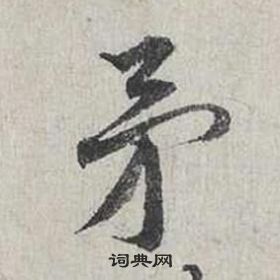 矛
词典网